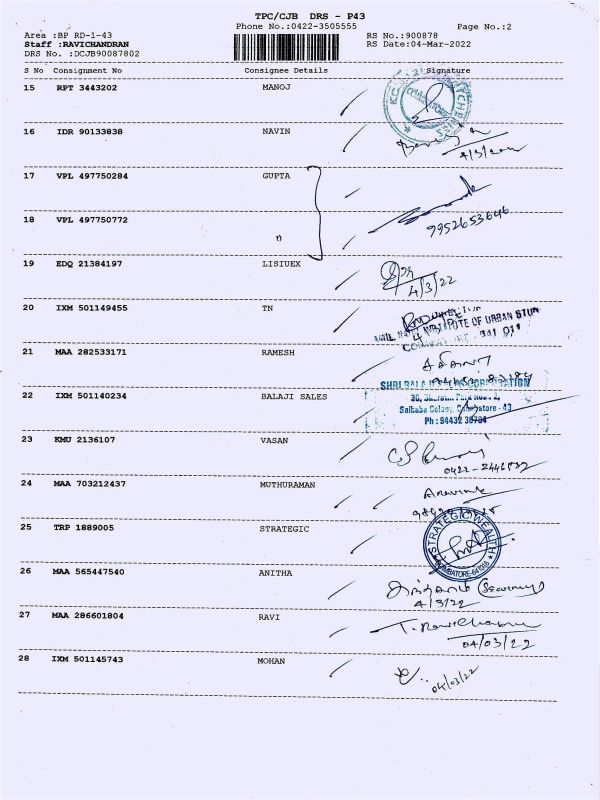 TPC/CJB DRS - P43
Phone No.:0422-3505555
Page No.:2
Area :BP RD-1-43
RS No.:900878
Staff :RAVICHANDRAN
RS Date:04-Mar-2022
DRS No. :DCJB90087802
S No Consignment No Consignee Details Signature
15 RPT 3443202 MANOJ
16 IDR 90133838 NAVIN
17 VPL 497750284 GUPTA
18 VPL 497750772
9952653646
19 EDQ 21384197 LISIUEX
4/3/22
20 IXM 501149455 TN
INSTITUTE OF URBAN
21 MAA 282533171 RAMESH
22 IXM 501140234 BALAJI SALES
Saibaba Colony, Coimbatore - 43
Ph : 94432 30784
23 KMU 2136107 VASAN
24 MAA 703212437 MUTHURAMAN
25 TRP 1889005 STRATEGIC
STRATEGIC WEALTH
26 MAA 565447540 ANITHA
4/3/22
27 MAA 286601804 RAVI
T. Ravichandran
04/03/22
28 IXM 501145743 MOHAN
04/03/22